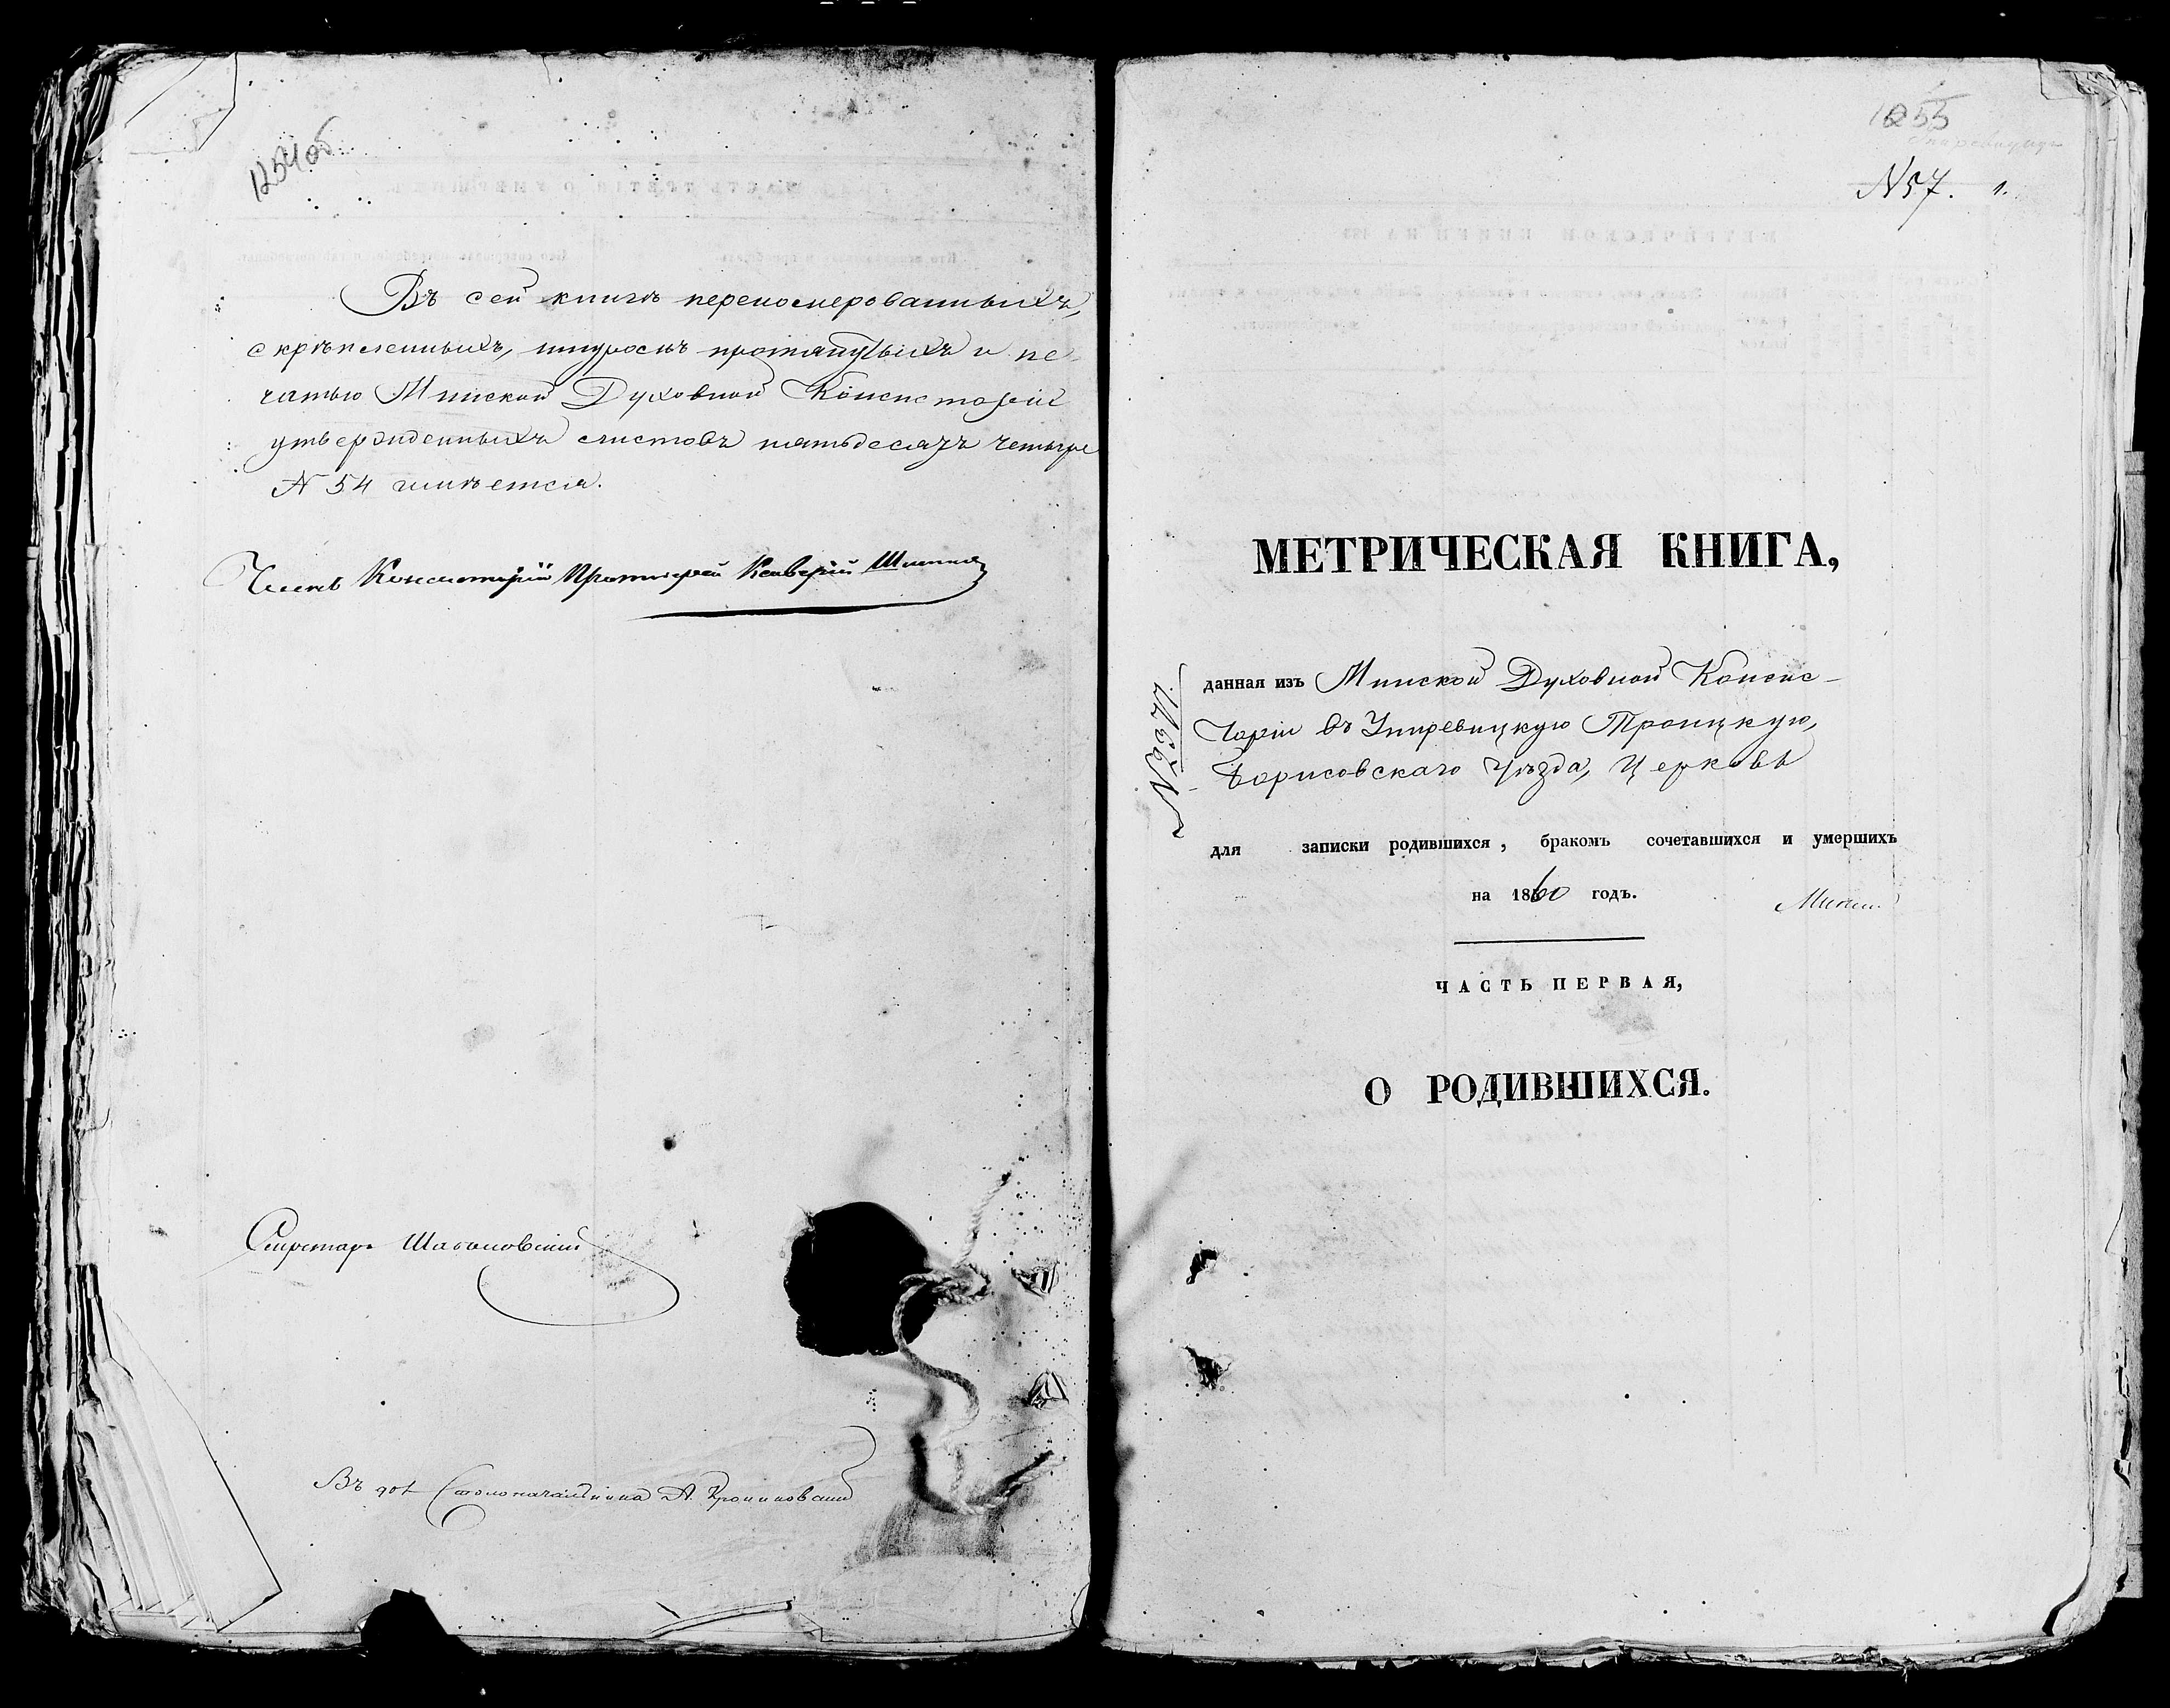 1254об
Въ сей книгѣ перепомерованныхъ,
скрѣпленныхъ, шнуромъ протянутыхъ и пе-
чатью Минской Духовной Консисторіи
утвержденныхъ листовъ пятьдесятъ четыре
N 54 имѣется.
Членъ Консисторіи Протоіерей
Секретарь
Въ дол. Столоначальника А.
1255
N 57. 1.
МЕТРИЧЕСКАЯ КНИГА,
данная изъ Минской Духовной Консис-
торіи въ Упиревицкую Троицкую,
Борисовскаго Уѣзда, Церковь
для записки родившихся, бракомъ сочетавшихся и умершихъ
на 1860 годъ.
ЧАСТЬ ПЕРВАЯ,
О РОДИВШИХСЯ.